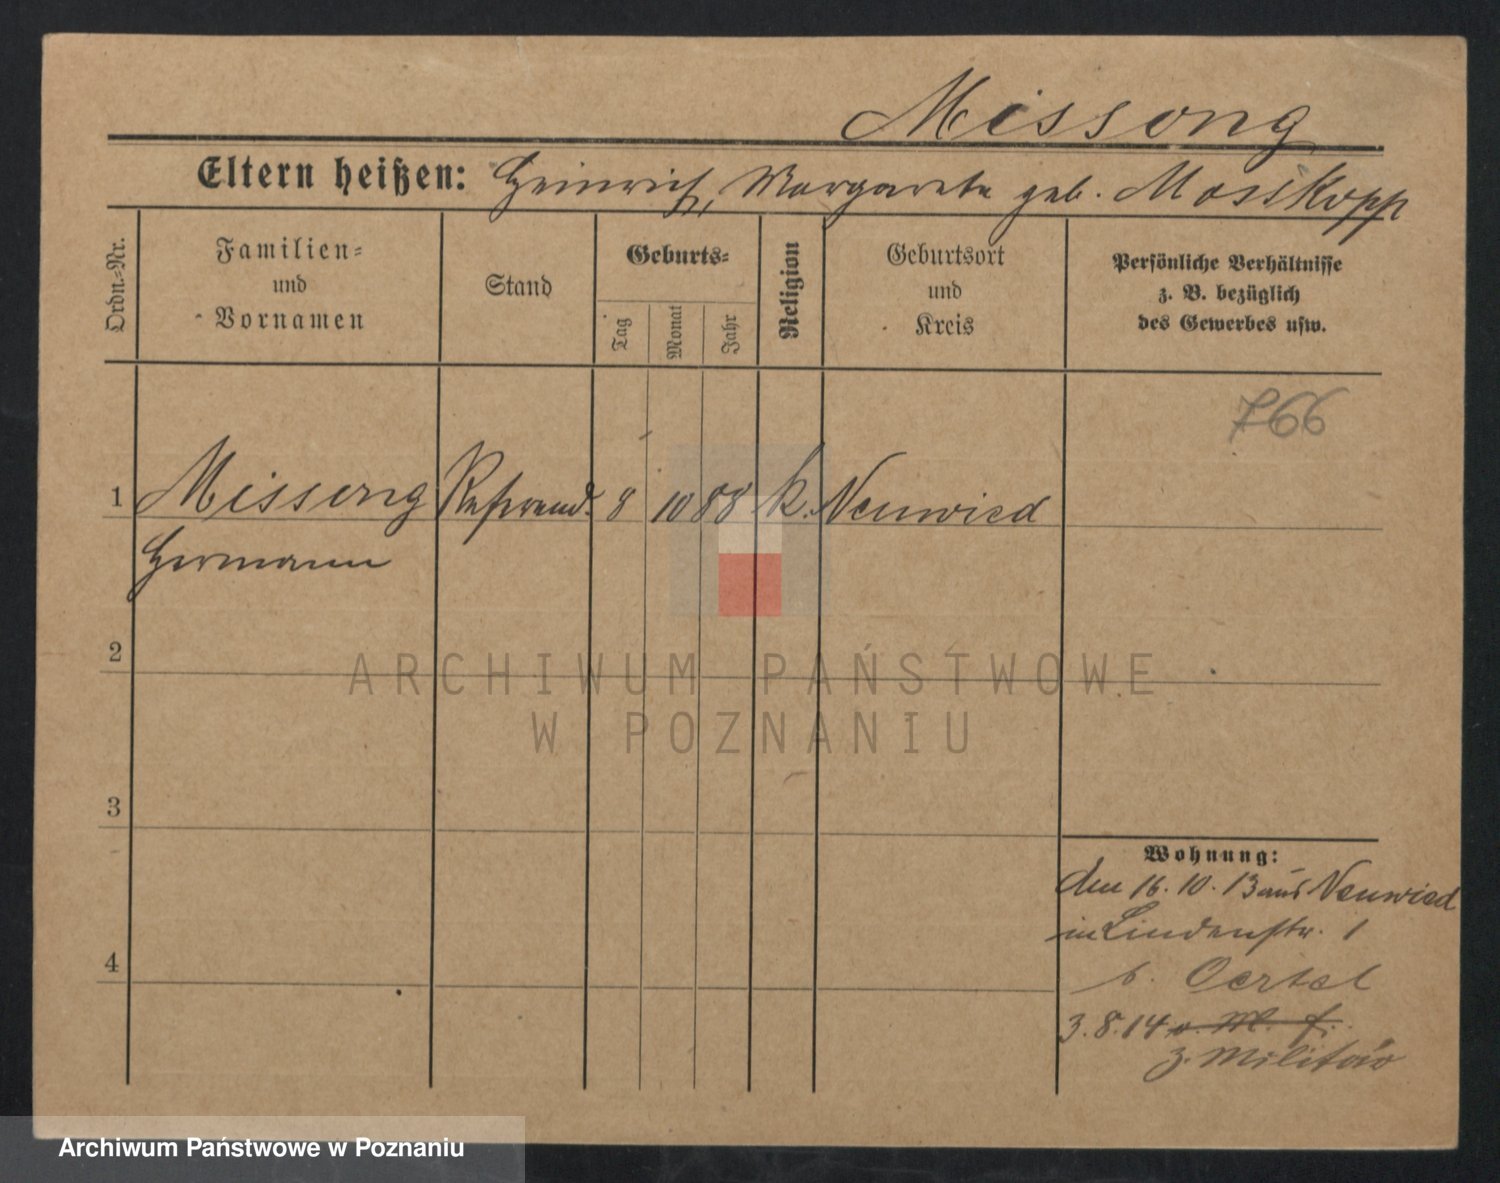 Missong
Eltern heißen: Heinrich, Margareta geb. Mosskopp
Ordn.-Nr.
Familien-
und
Vornamen
Stand
Geburts-
Tag
Monat
Jahr
Religion
Geburtsort
und
Kreis
Persönliche Verhältnisse
z. B. bezüglich
des Gewerbes usw.
766
1 Missong Referend. 8 10 88 k. Neuwied
Hermann
2
ARCHIWUM PAŃSTWOWE
W POZNANIU
3
Wohnung:
den 16. 10. 13 aus Neuwied
in Lindenstr. 1
4
b. Oertel
3. 8. 14 v. M. f.
z. Militär
Archiwum Państwowe w Poznaniu